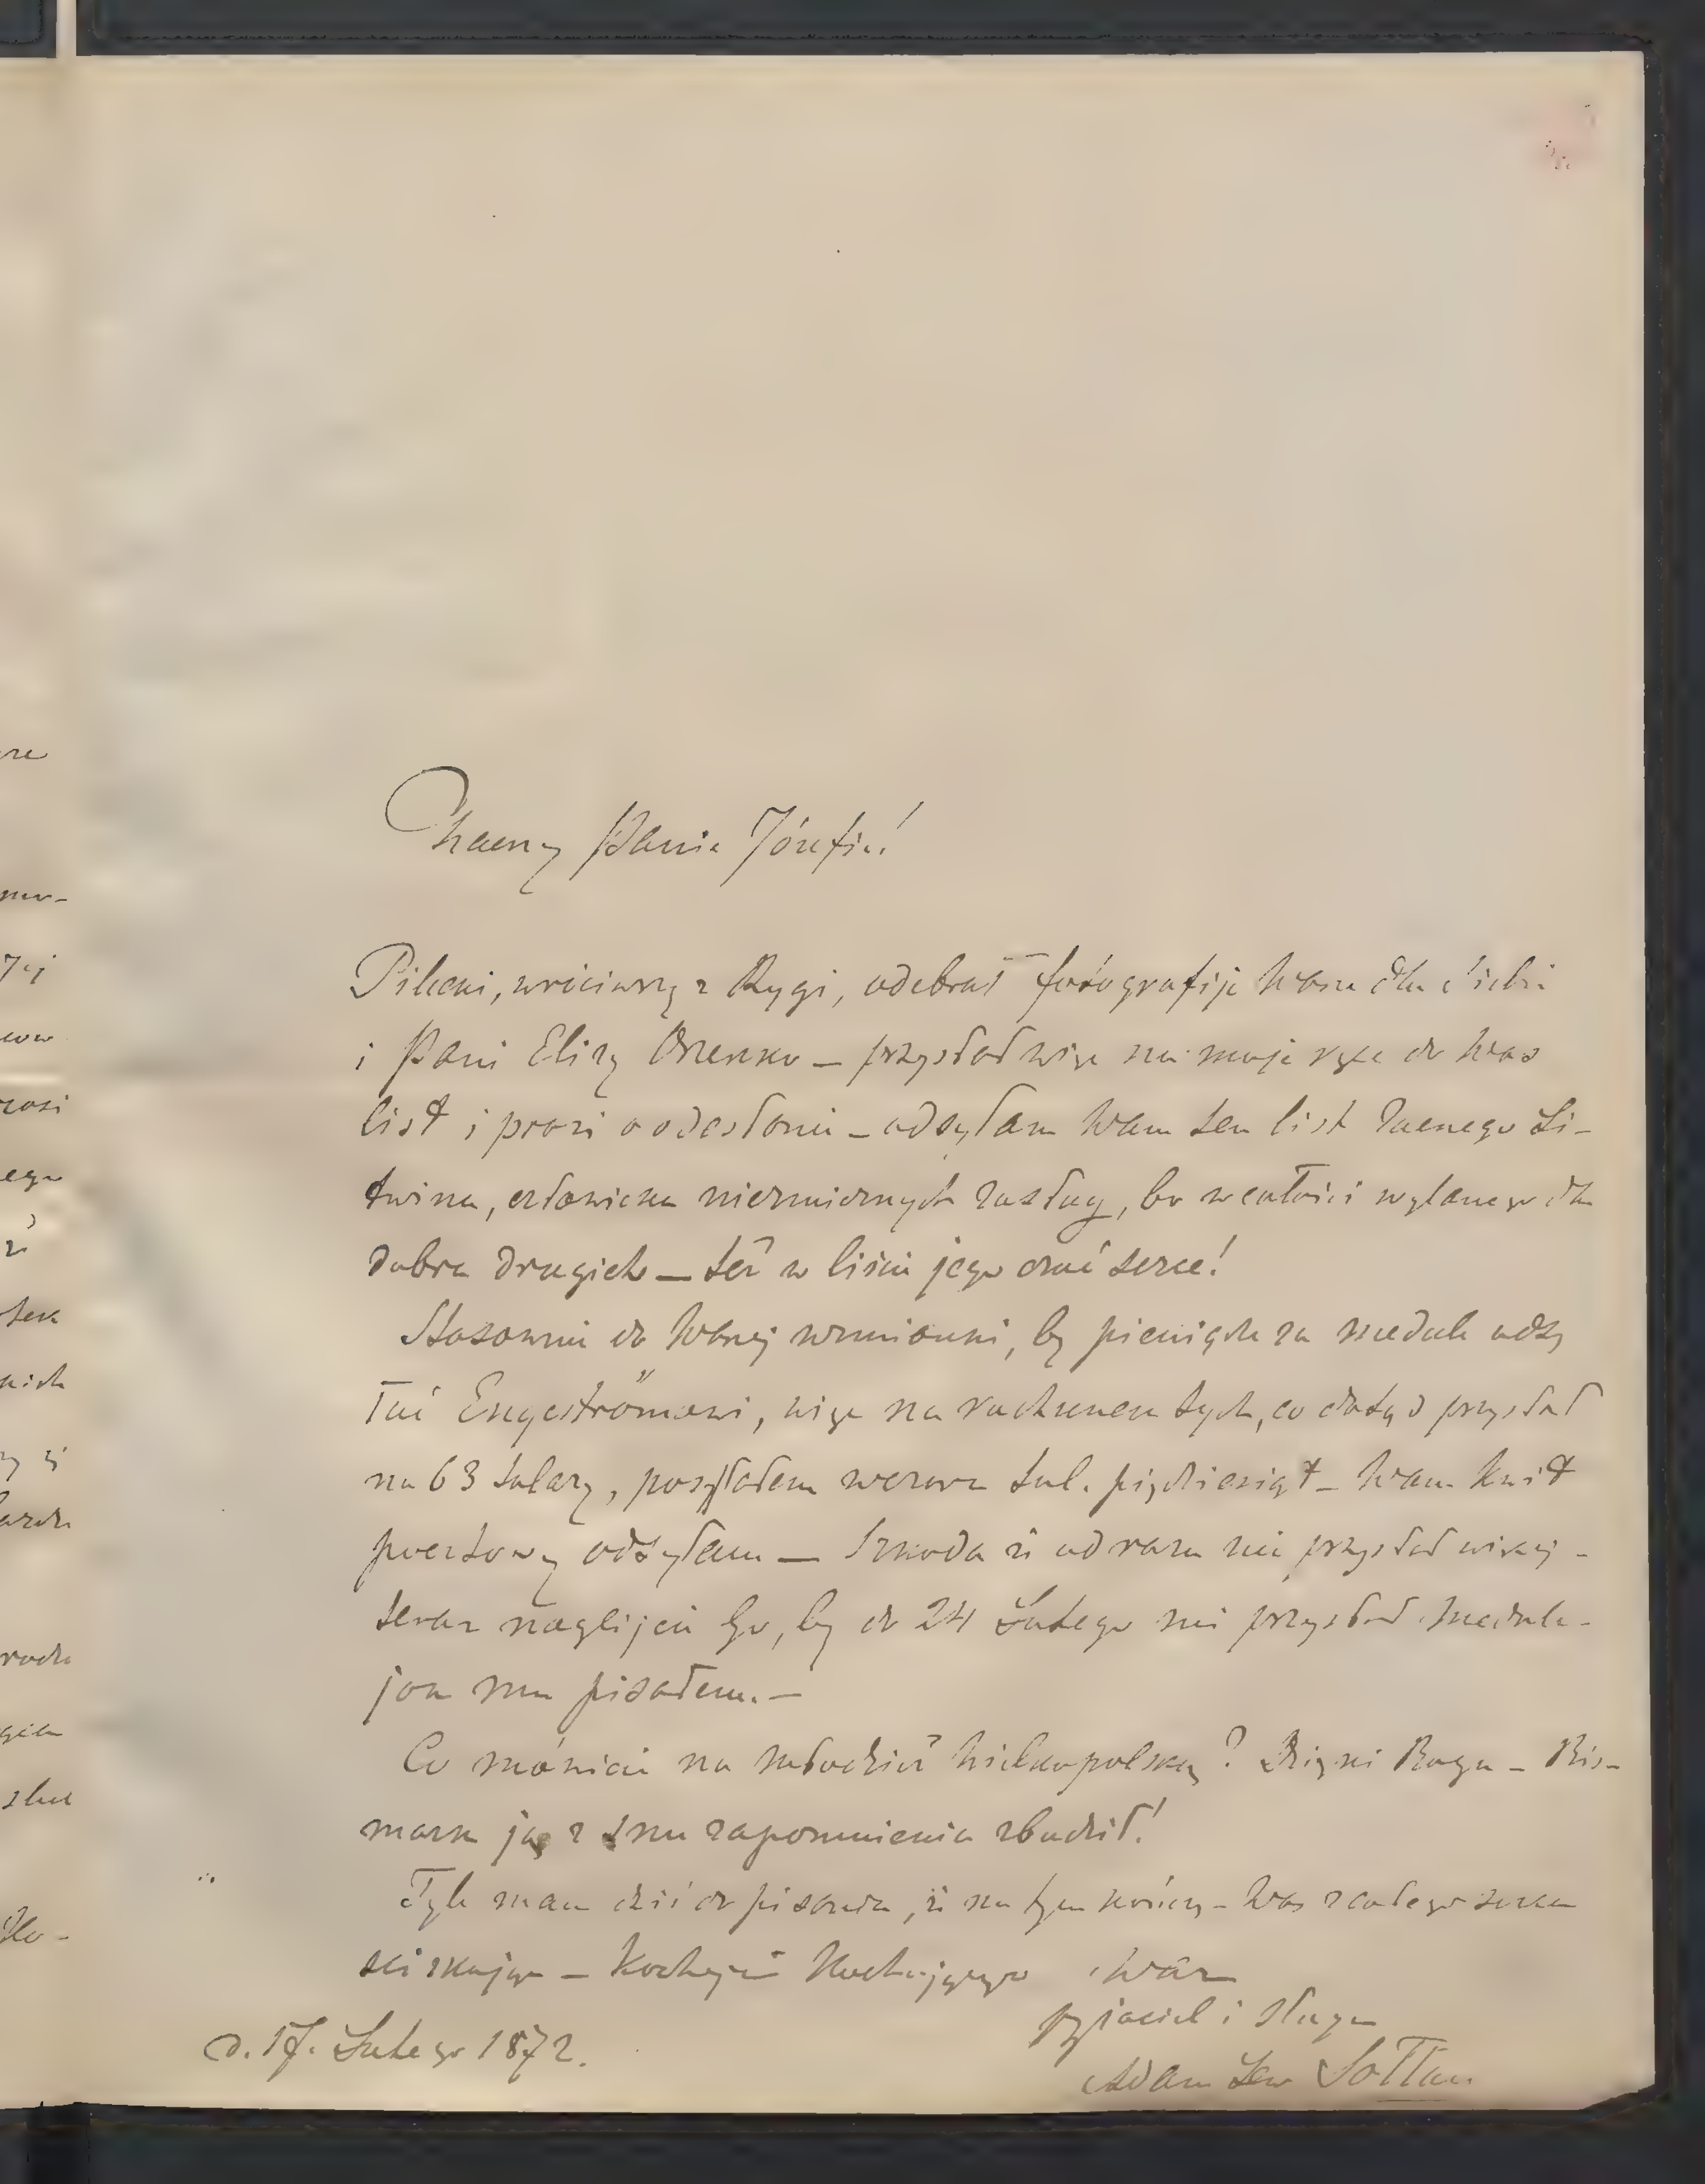 Zacny Panie Józefie!
Pilecki, wróciwszy z Rygi, odebrał fotografije Wasze dla siebie
i Pani Elizy Orzeszko – przysłał więc na moje ręce do Was
list i prosi o odesłanie – odsyłam Wam ten list Zacnego Li-
twina, człowieka niezmiernych zasług, bo w całości wylanego dla
dobra drugich – też w liście jego czuć serce!
Stosownie do Waszej wzmianki, by pieniądze za medale odsy
łać Engeströmowi, więc na rachunek tych, co dotąd przysłał
na 63 talary, posłałem wczora tal. pięćdziesiąt – Wam kwit
pocztowy odsyłam – Szkoda że od razu nie przysłał więcej –
teraz naglijcie Go, by do 24 Lutego mi przysłał medale –
jak mu pisałem. –
Co mówicie na młodzież Wielkopolską? Dzięki Bogu – Bis-
mark ją z snu zapomnienia zbudził!
Tyle mam dziś do pisania, że na tym kończę – Was z całego serca
ściskając – Kochajcie Kochającego Was
przyjaciel i sługa
Adam Lew Sołtan
d. 17. Lutego 1872.